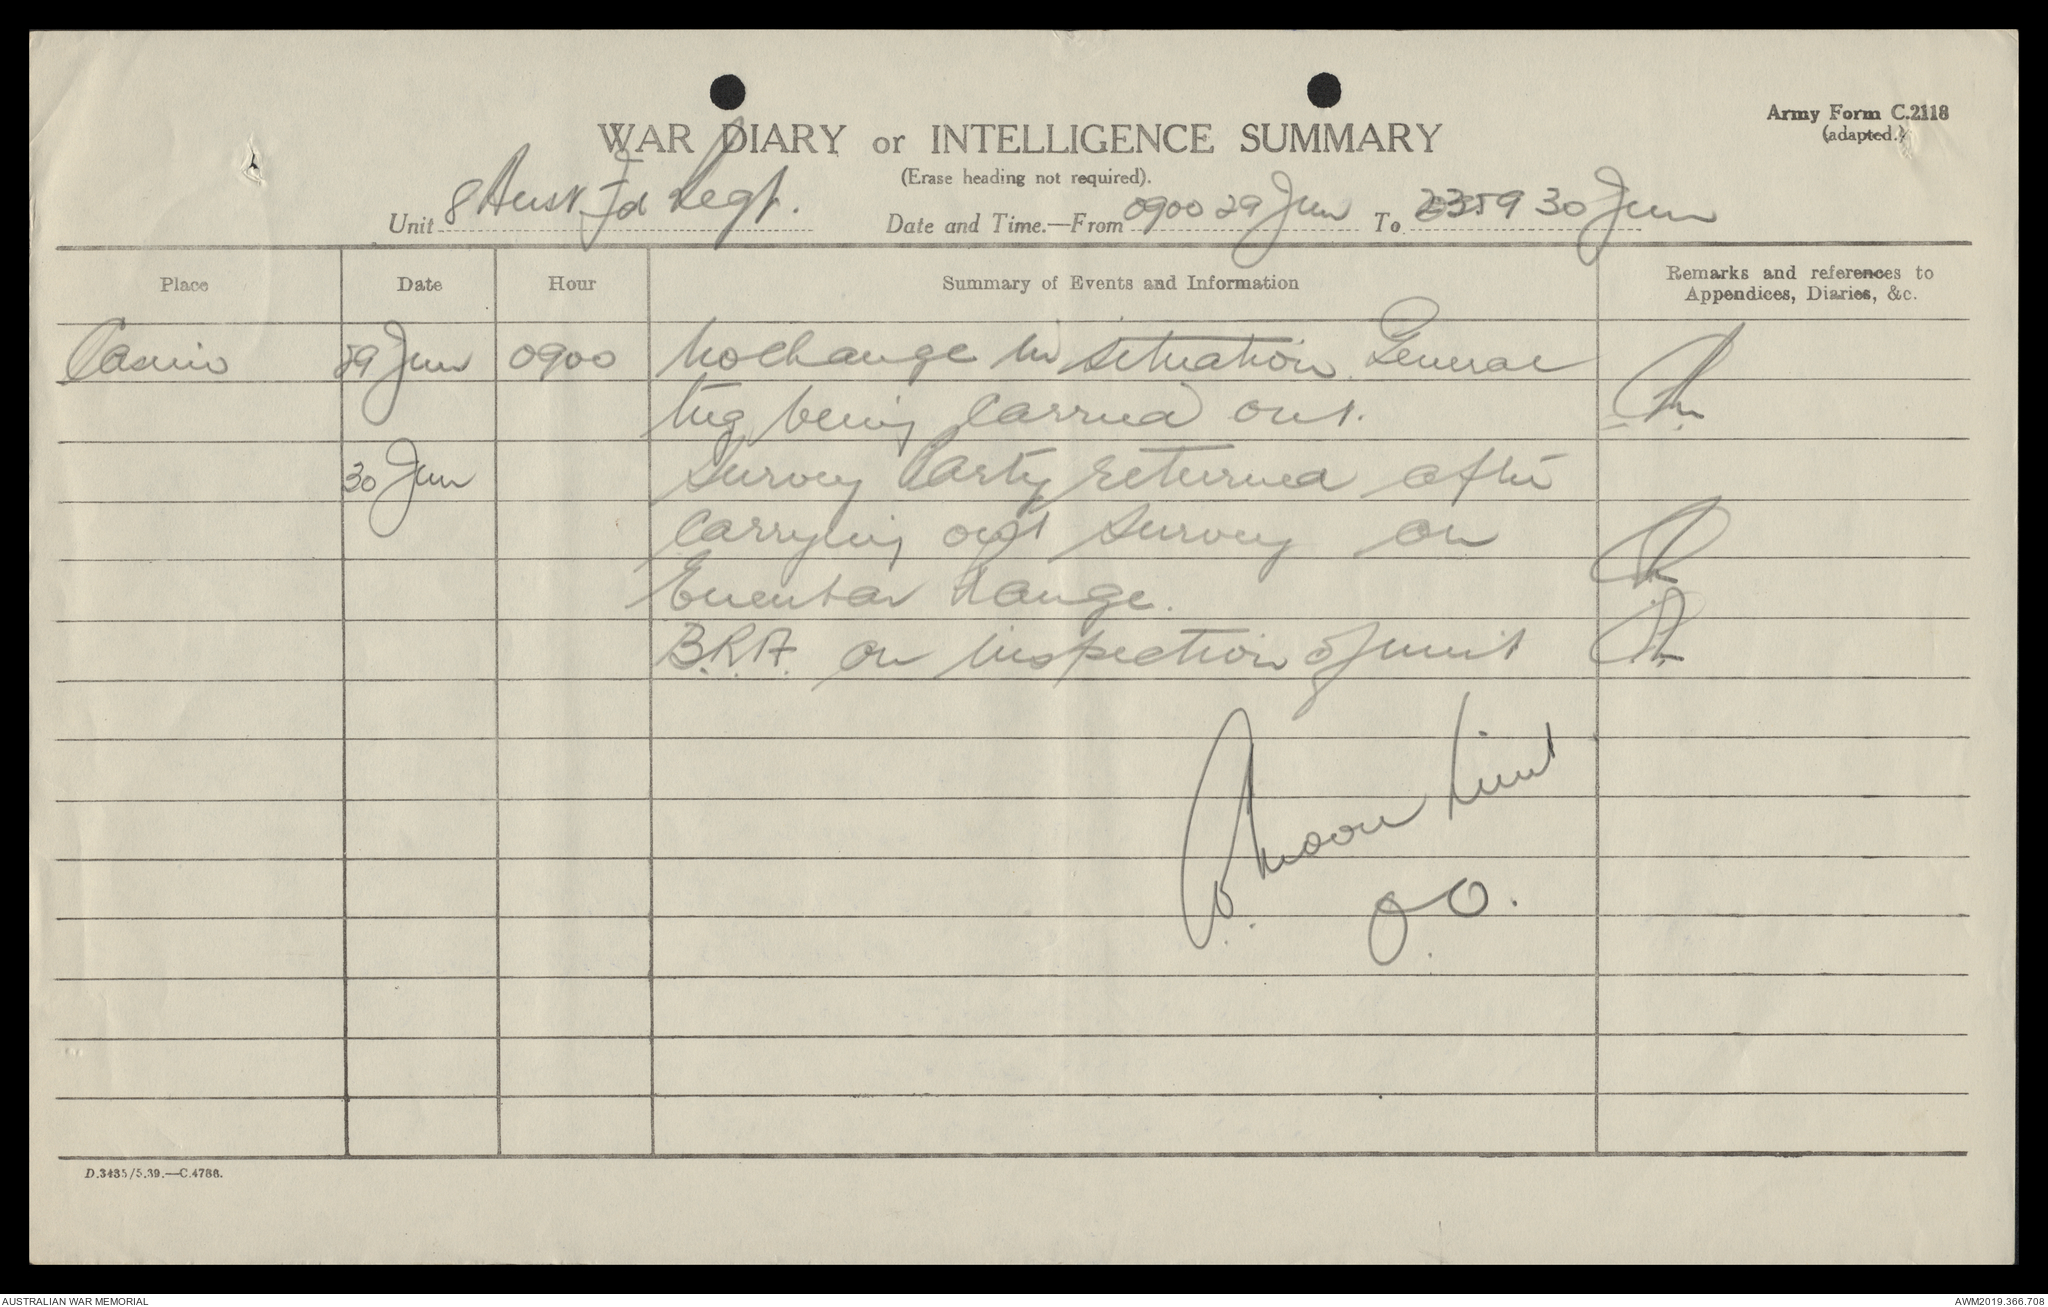 Army Form C.2118
(adapted.)
WAR DIARY or INTELLIGENCE SUMMARY
(Erase heading not required).
Unit 8 Aust Fd Regt. Date and Time.—From 0900 29 Jun To 2359 30 Jun
Place Date Hour Summary of Events and Information Remarks and references to Appendices, Diaries, &c.
Casino 29 Jun 0900 No change in situation. General
trg being carried out.
30 Jun Survey Party returned after
carrying out survey on
Range.
B.R.A. on inspection of unit
Moore Lieut
D.3435/5.39.—C.4786.
AUSTRALIAN WAR MEMORIAL
AWM2019.366.708